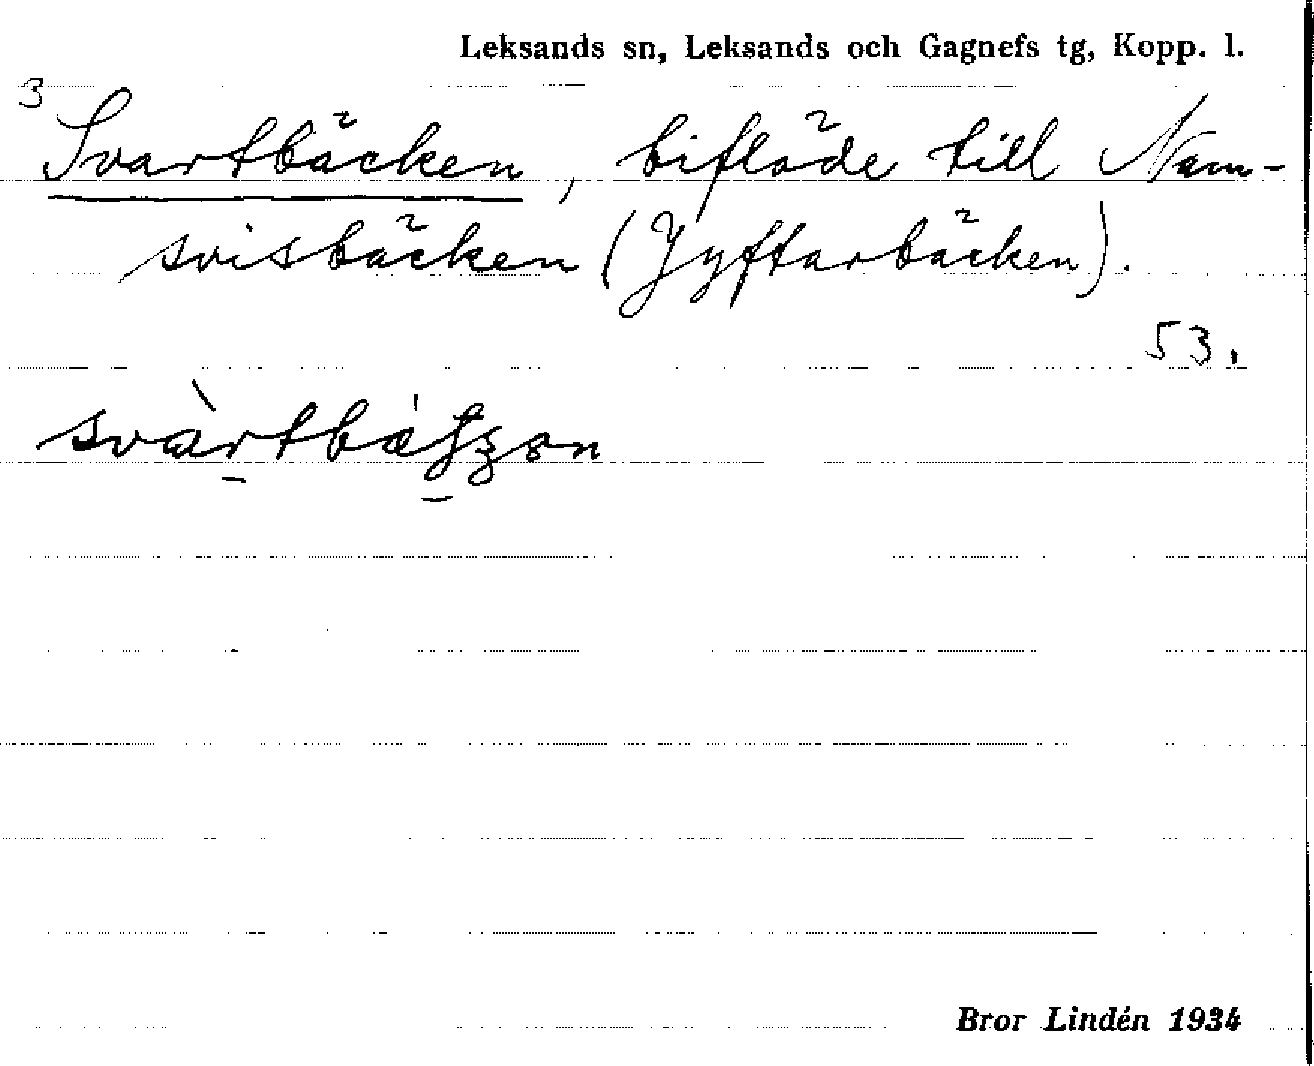 Leksands sn, Leksands och Gagnefs tg, Kopp. l.
3
Svartbäcken, biflöde till Nam-
svisbäcken (Jyftarbäcken).
53.
Bror Lindén 1934